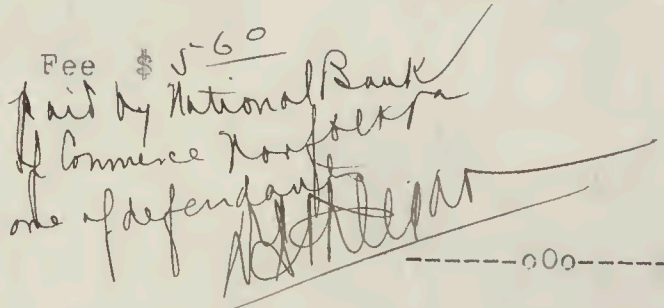 Fee $ 5 60
paid by National Bank
of Commerce Norfolk Va
one of defendants
------oOo------